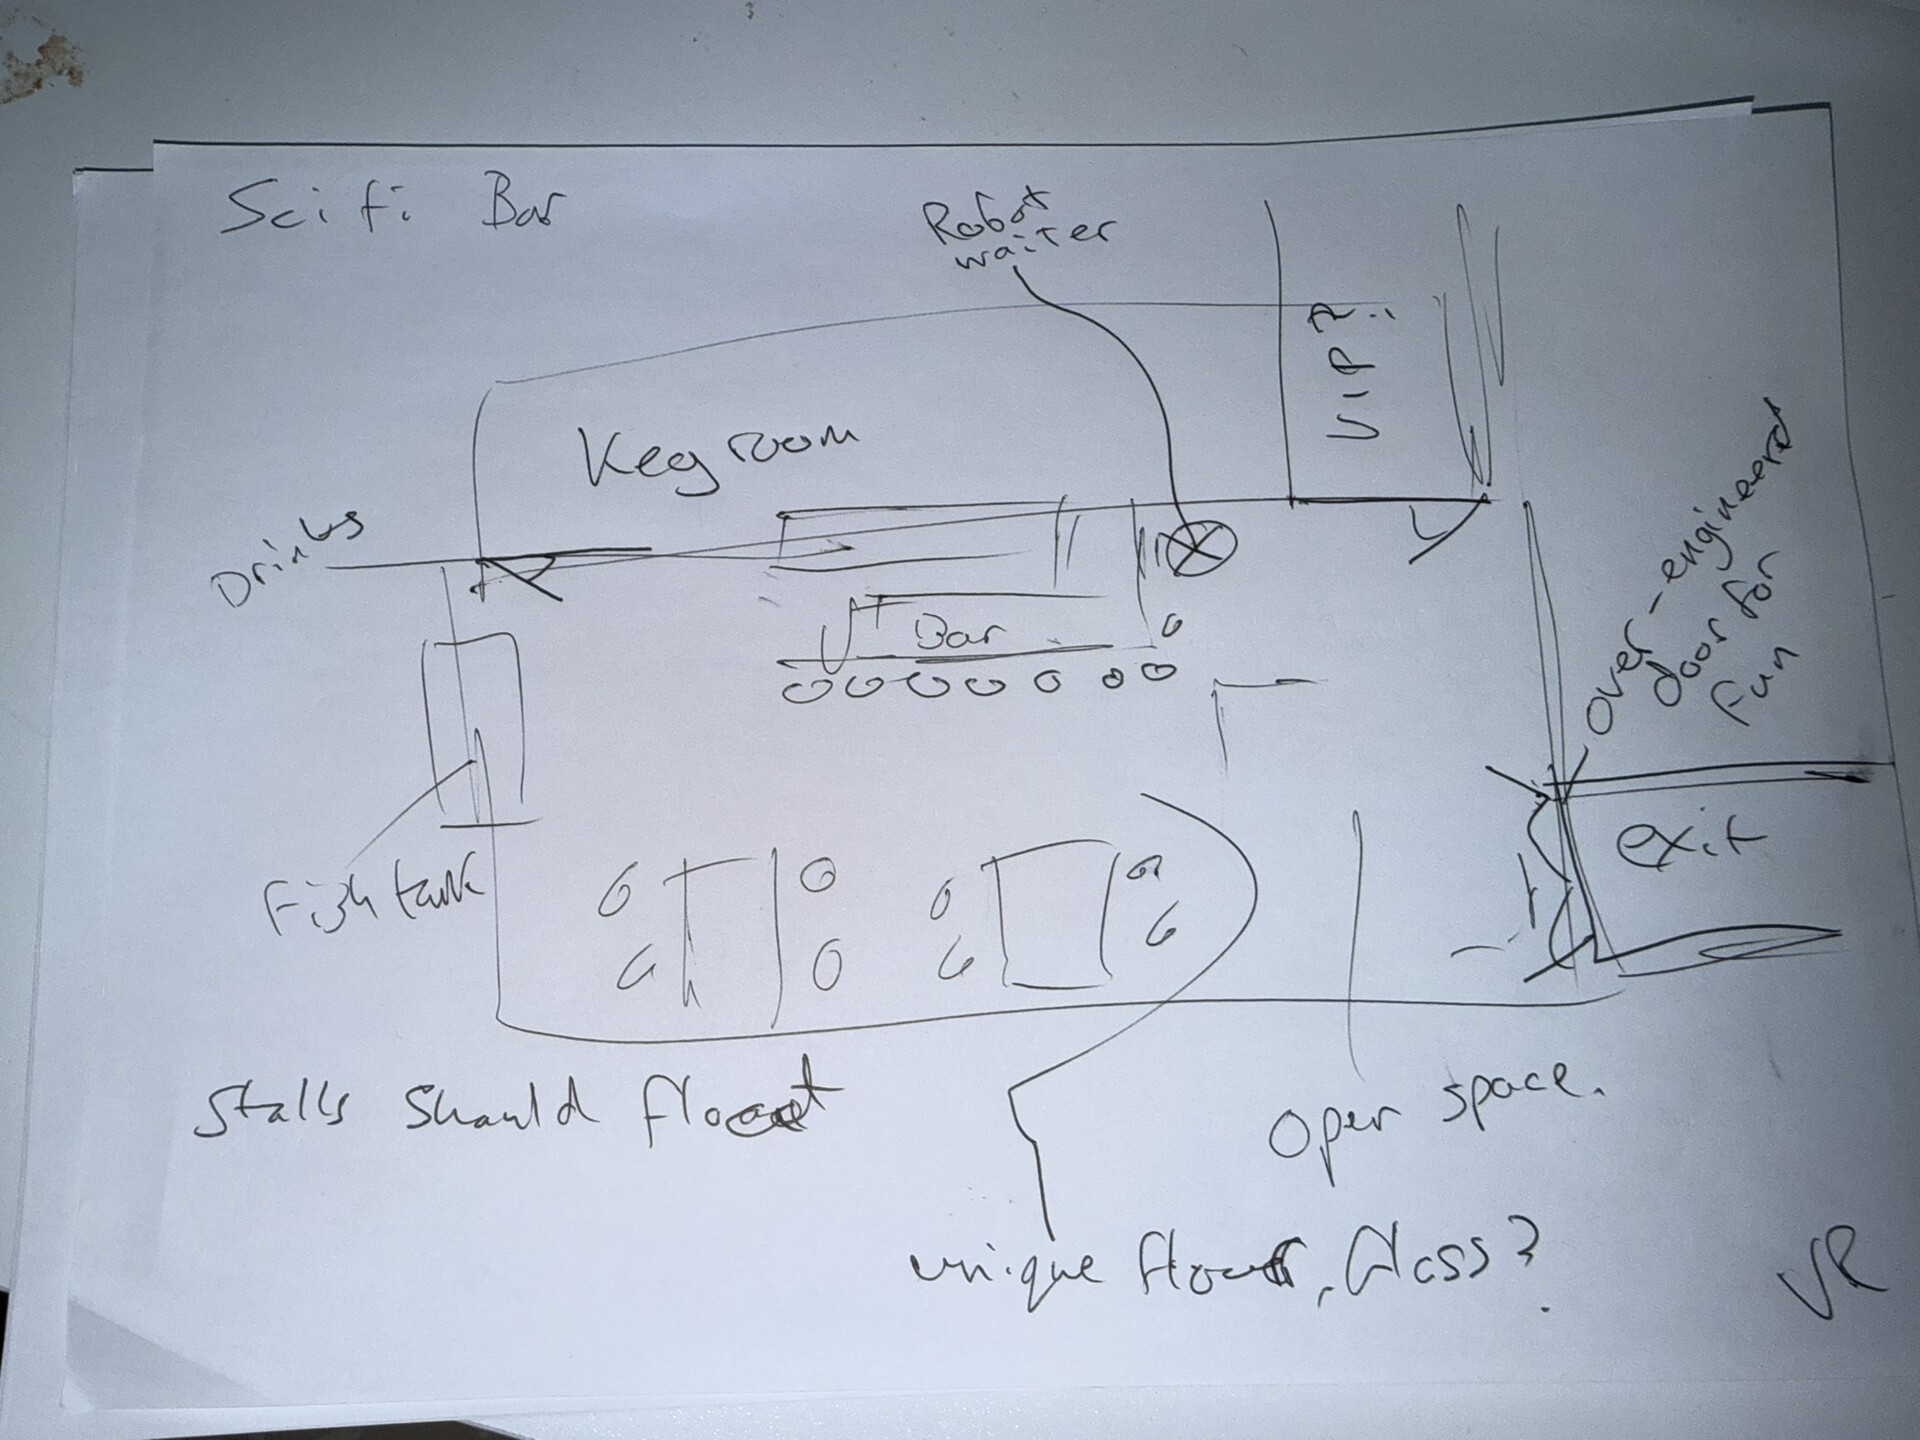 Scifi Bar
Robot
waiter
VIP?
Keg room
Drinks
Bar
over-engineered
door for
fun
exit
Fish tank
Stalls should float
open space.
unique floor, Glass?
VR